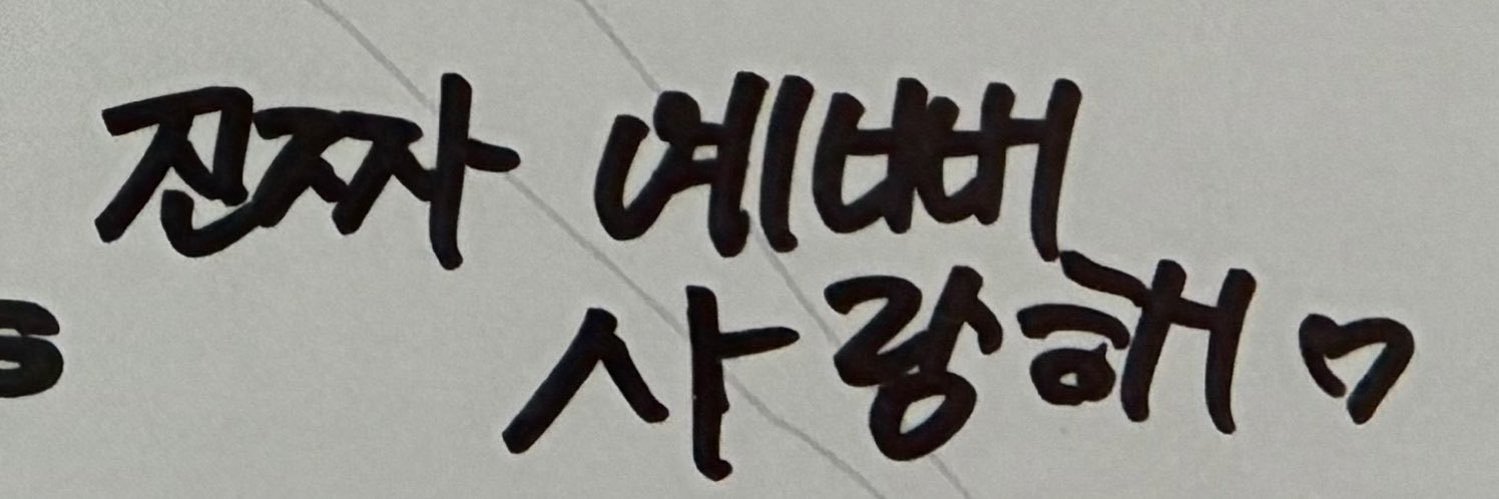 진짜 예뻐
사랑해 ♡